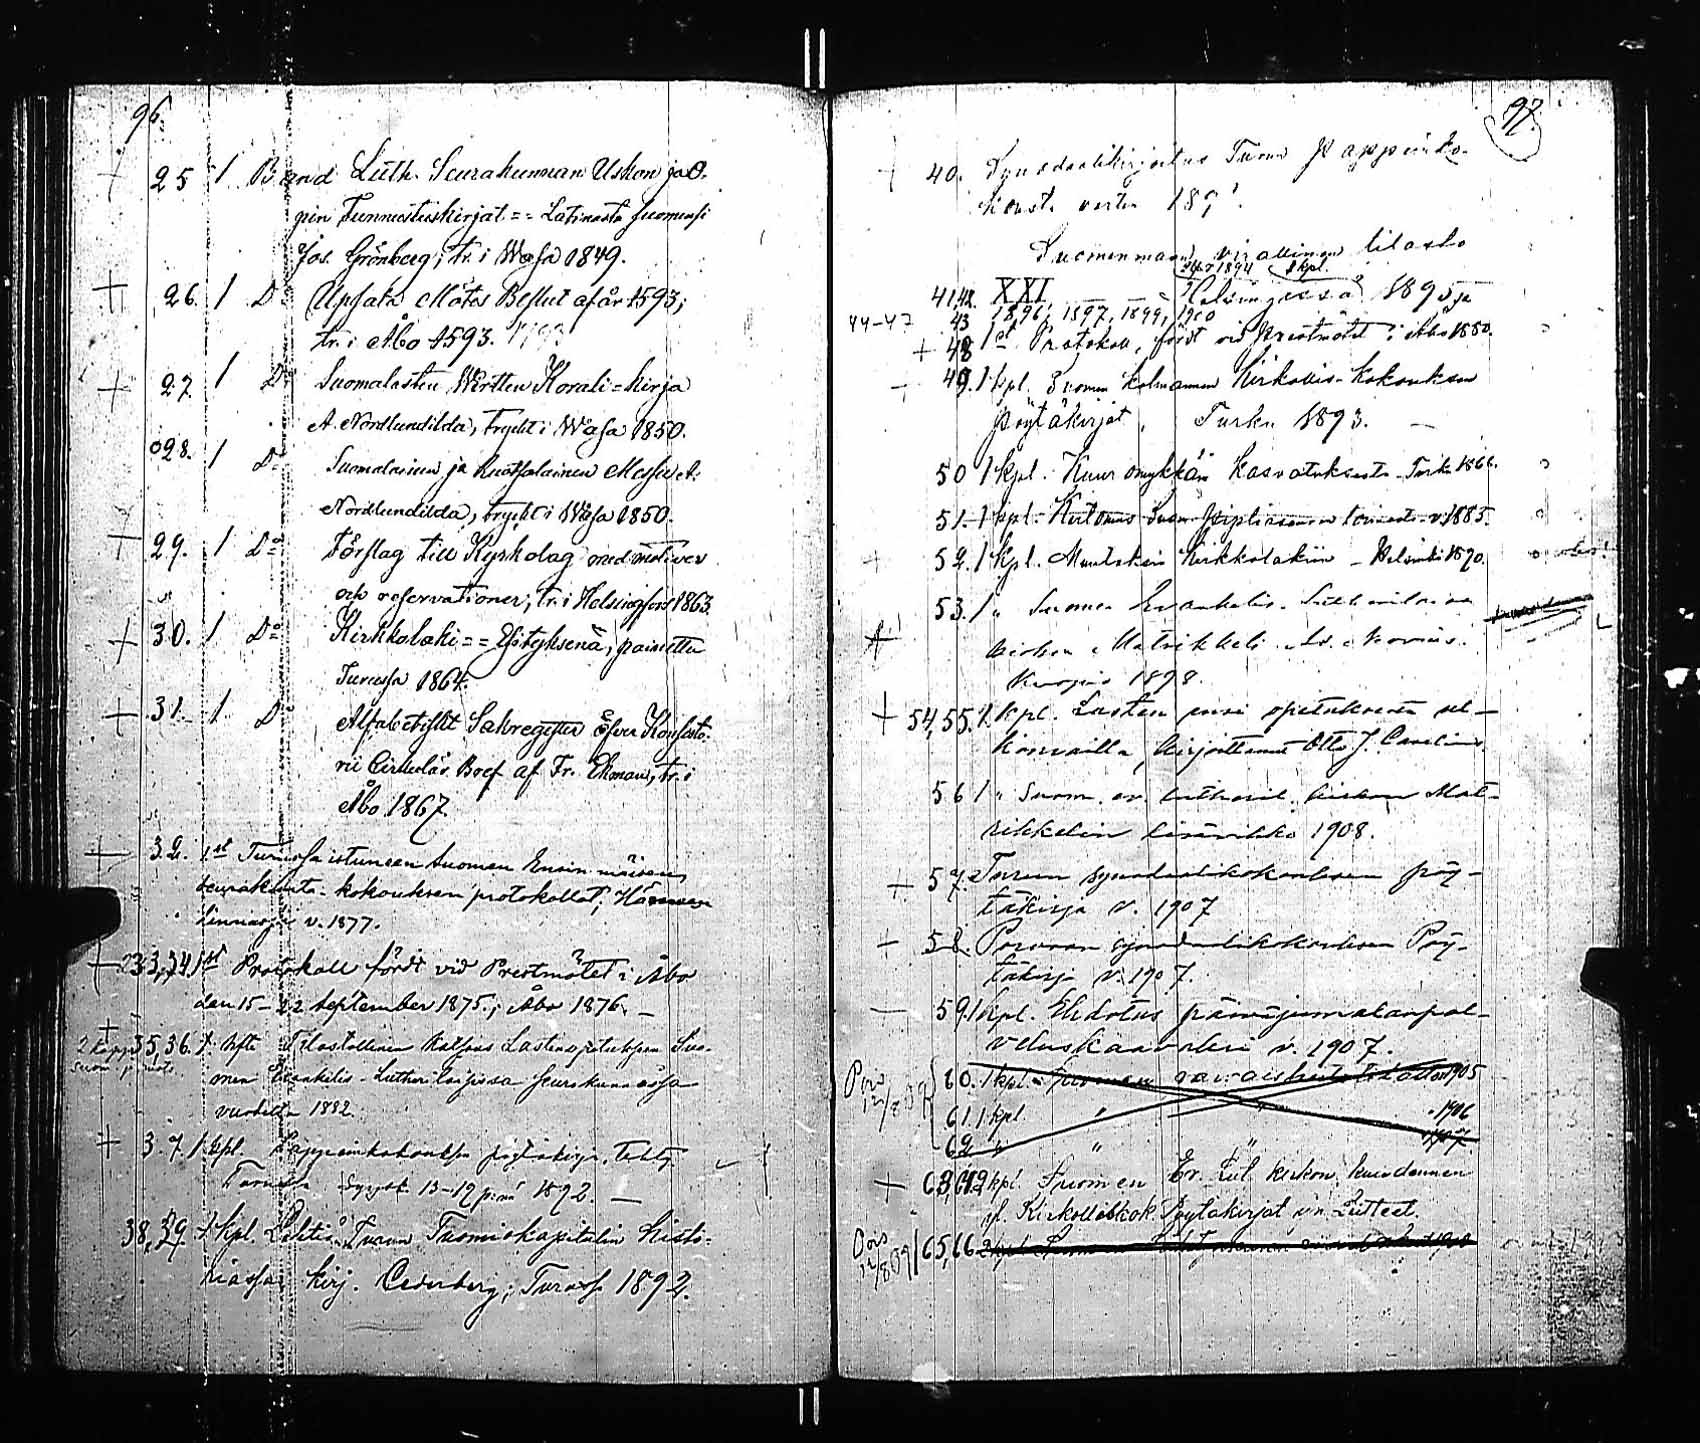 96.
+ 25 1 Band Luth. Seurakunnan Uskon ja O-
pin Tunnustuskirjat == Latinasta suomensi
Jos. Grönberg; tr. i Wasa 1849.
+ 26. 1 Do Upsala Mötes Beslut af år 1593;
tr. i Åbo 1593.
+ 27. 1 Do Suomalasten Wirtten Korali-kirja
A. Nordlundilda, tryckt i Wasa 1850.
28. 1 Do Suomalainen ja Ruotsalainen Messu A.
Nordlundilda, tryckt i Wasa 1850.
+ 29. 1 Do Förslag till Kyrkolag med motiver
och reservationer; tr. i Helsingfors 1863.
+ 30. 1 Do Kirkkolaki == Esityksenä, painettu
Turussa 1864.
+ 31. 1 Do Alfabetiskt Sakregister öfver Konsisto-
rii Cirkulär Bref af Fr. Ekman, tr. i
Åbo 1867.
+ 32. 1 st Turussa istuneen Suomen Ensimmäisen
seurakunta-kokouksen protokollat; Hämeen
linnassa v. 1877.
+ 33,34 1 st Protokoll fördt vid Prestmötet i Åbo
den 15-22 September 1875.; Åbo 1876. —
+
2 kapp 35,36. 1. hfte Tilastollinen Katsaus Lastenopetuksen Suo-
men Evankelis-Lutherilaisissa seurakunnissa
vuodelta 1882.
+ 37. 1 kpl. Pappeinkokouksen pöytäkirja, tehty
Turussa Syysk. 13-19 pinä 1892. —
38,39. 1 kpl. Lehtiä Turun Tuomiokapitulin histo-
riassa kirj. Cederberg; Turussa 1892.
97.
40. Synodaalikirjoitus Turun Pappeinko-
kousta varten 189
Suomenmaan virallinen tilasto
1894 1 kpl.
41,42. XXI Helsingissä 1895 ja
44-47 43 1896, 1897, 1899, 1900
+ 48 1 st Protokoll, fördt vid Prestmötet i Åbo 1880.
49. 1 kpl. Suomen kolmannen Kirkollis-kokouksen
pöytäkirjat, Turku 1893. —
50 1 kpl. Kuuromykkäin kasvatuksesta. Turku 1866.
51. 1 kpl. Kertomus Suomen Pipliaseuran toimesta v. 1885.
52. 1 kpl. Muutoksia Kirkkolakiin - Helsinki 1890.
53. 1 „ Suomen Evankelis-Lutherilaisen
kirkon Matrikkeli
Kuopio 1898.
+ 54,55. 2 kpl. Lasten opetuksesta
kirjoittanut Otto J. Canelius.
56 1 „ Suom. ev. luther. kirkon Mat-
rikkelin lisävihko 1908.
+ 57. Turun synodaalikokouksen pöy-
täkirja v. 1907
+ 58. Porvoon synodaalikokouksen Pöy-
täkirja v. 1907.
— 59. 1 kpl. Ehdotus päiväjumalanpal-
veluskaavaksi v. 1907.
60. 1 kpl. Suomen 1905
61. 1 kpl. „ „ 1906
62 „ „ „ 1907.
+ 63,64. 2 kpl. Suomen Ev. Lut. kirkon kuudennen
Kirkolliskok. Pöytäkirjat y.n. Liitteet.
65,66